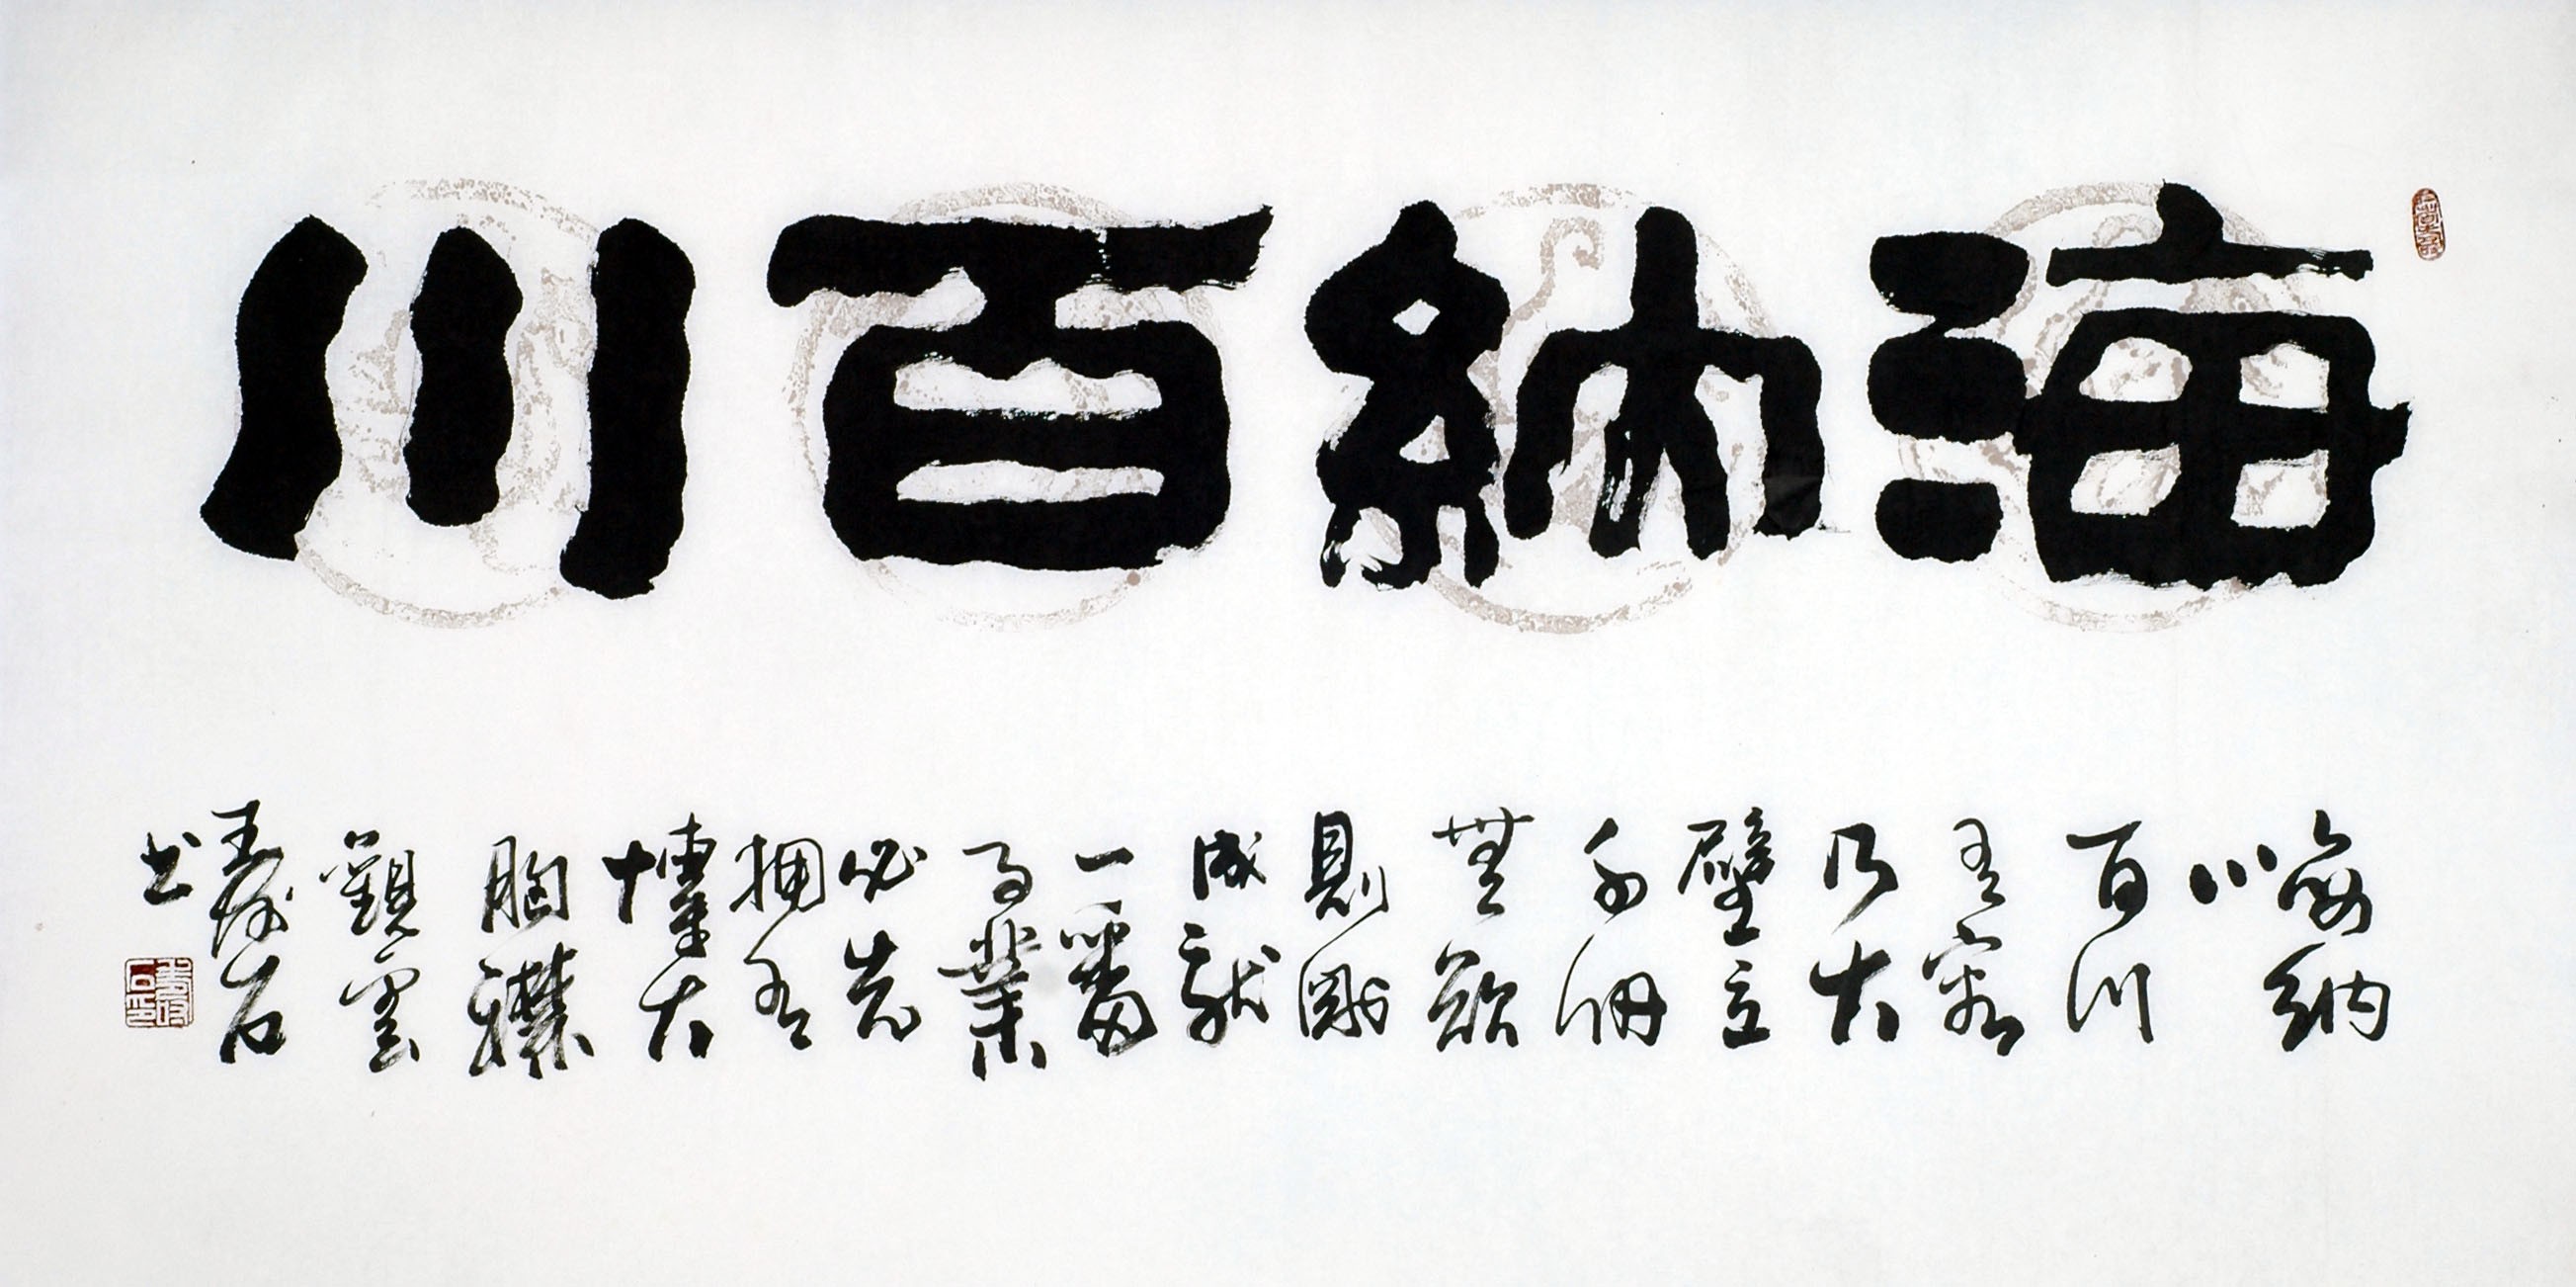 海納百川
海納
百川
有容
乃大
壁立
千仞
無欲
則剛
成就
一番
事業
必先
拥有
博大
胸襟
觀雲
石
书